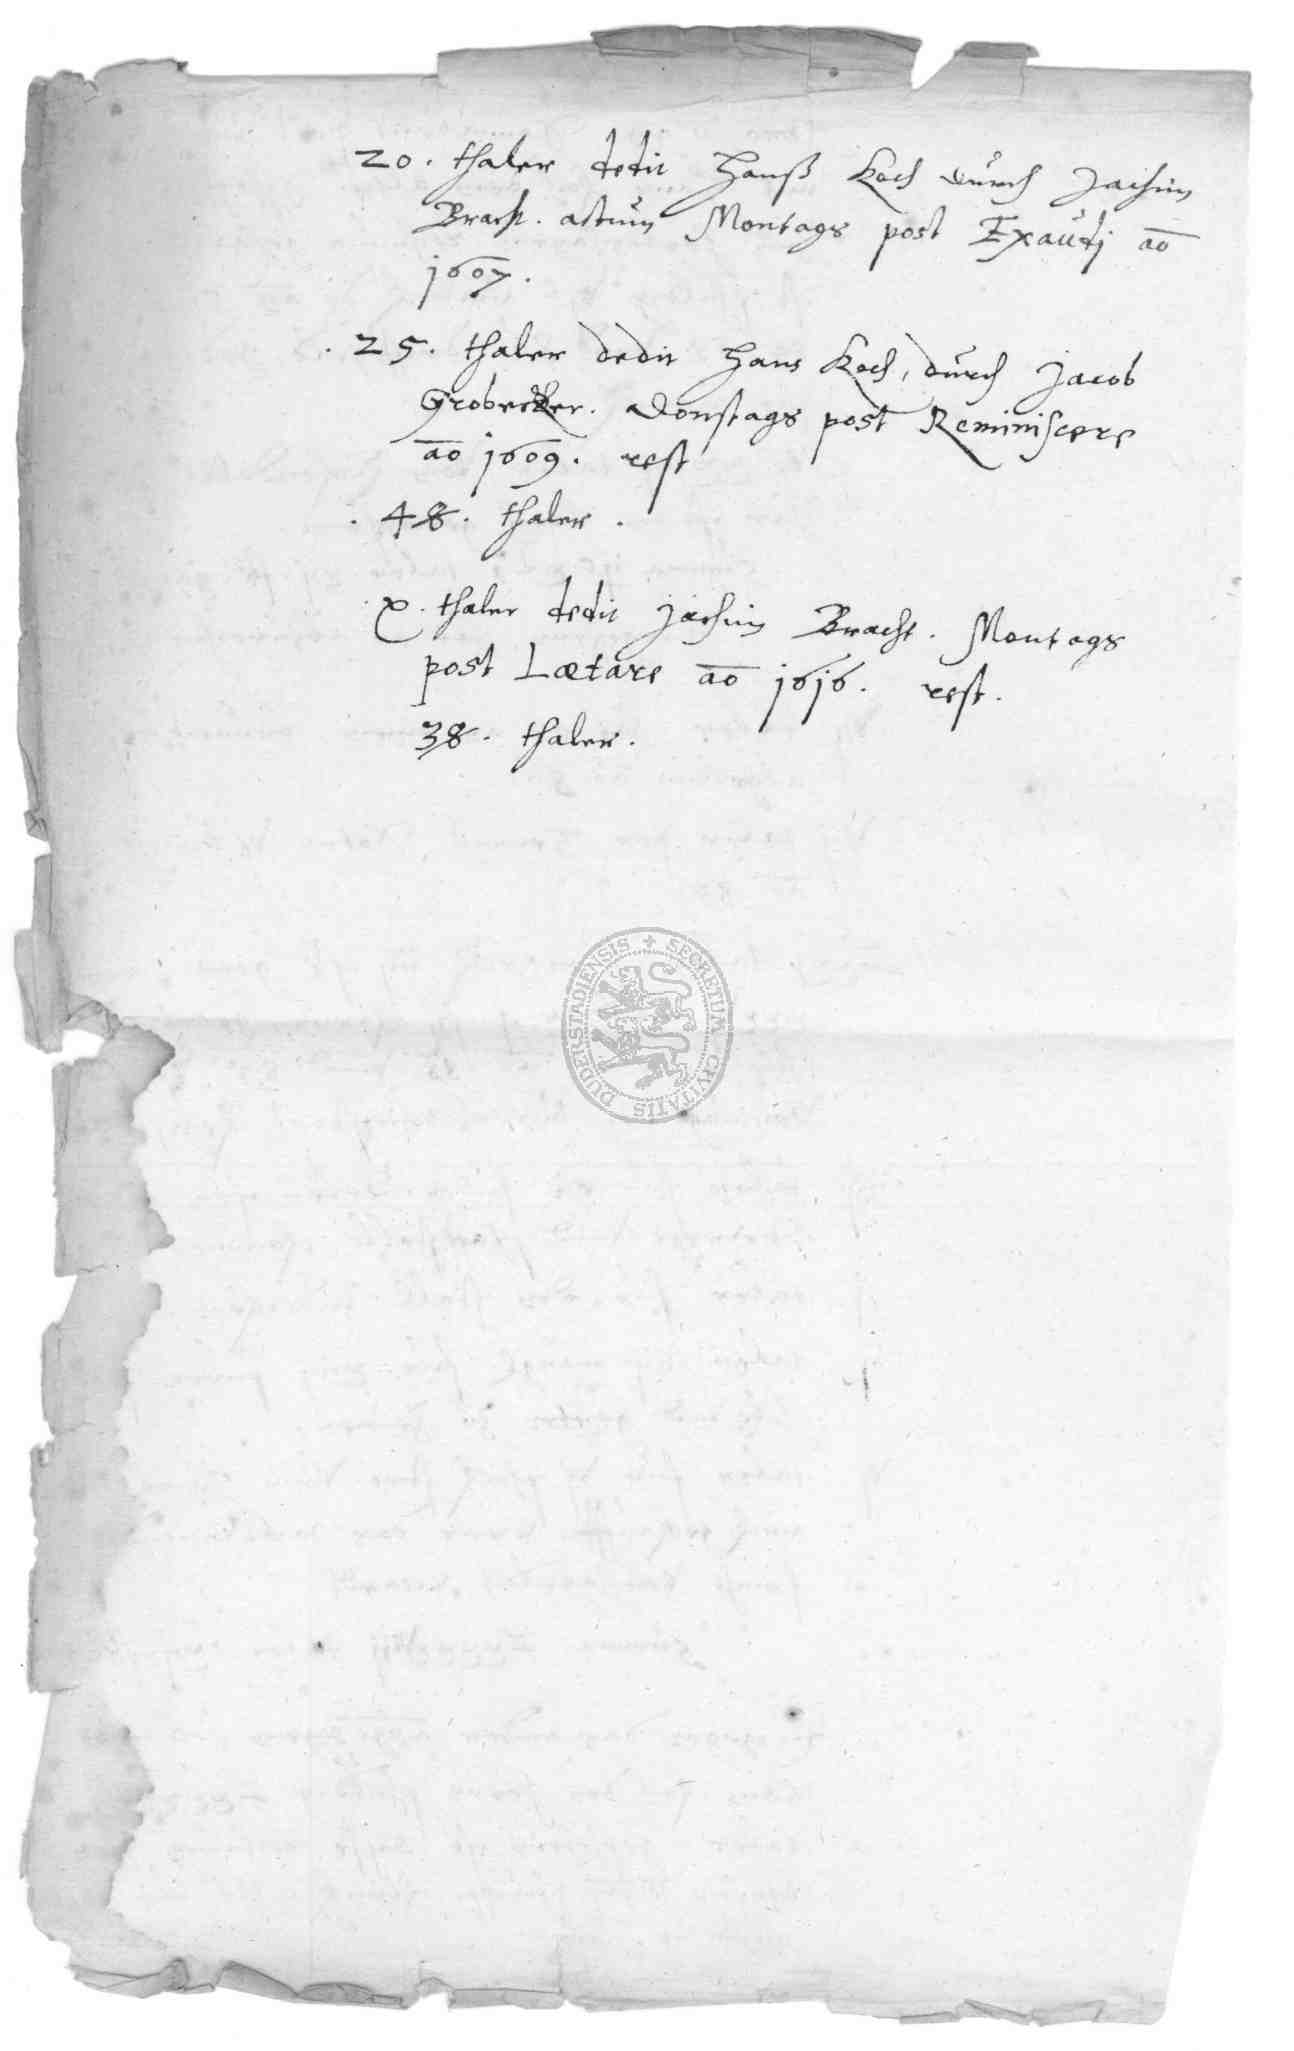 20. thaler dedit Hanß Koch durch Jachim
Bracht. actum Montags post Exaudj ao
1607.
. 25. thaler dedit Hans Koch, durch Jacob
Grobecker. Donstags post Reminiscere
ao 1609. rest
. 48. thaler.
x. thaler dedit Jachim Bracht. Montags
post Lætare ao 1616. rest.
38. thaler.
SECRETUM CIVITATIS DUDERSTADIENSIS